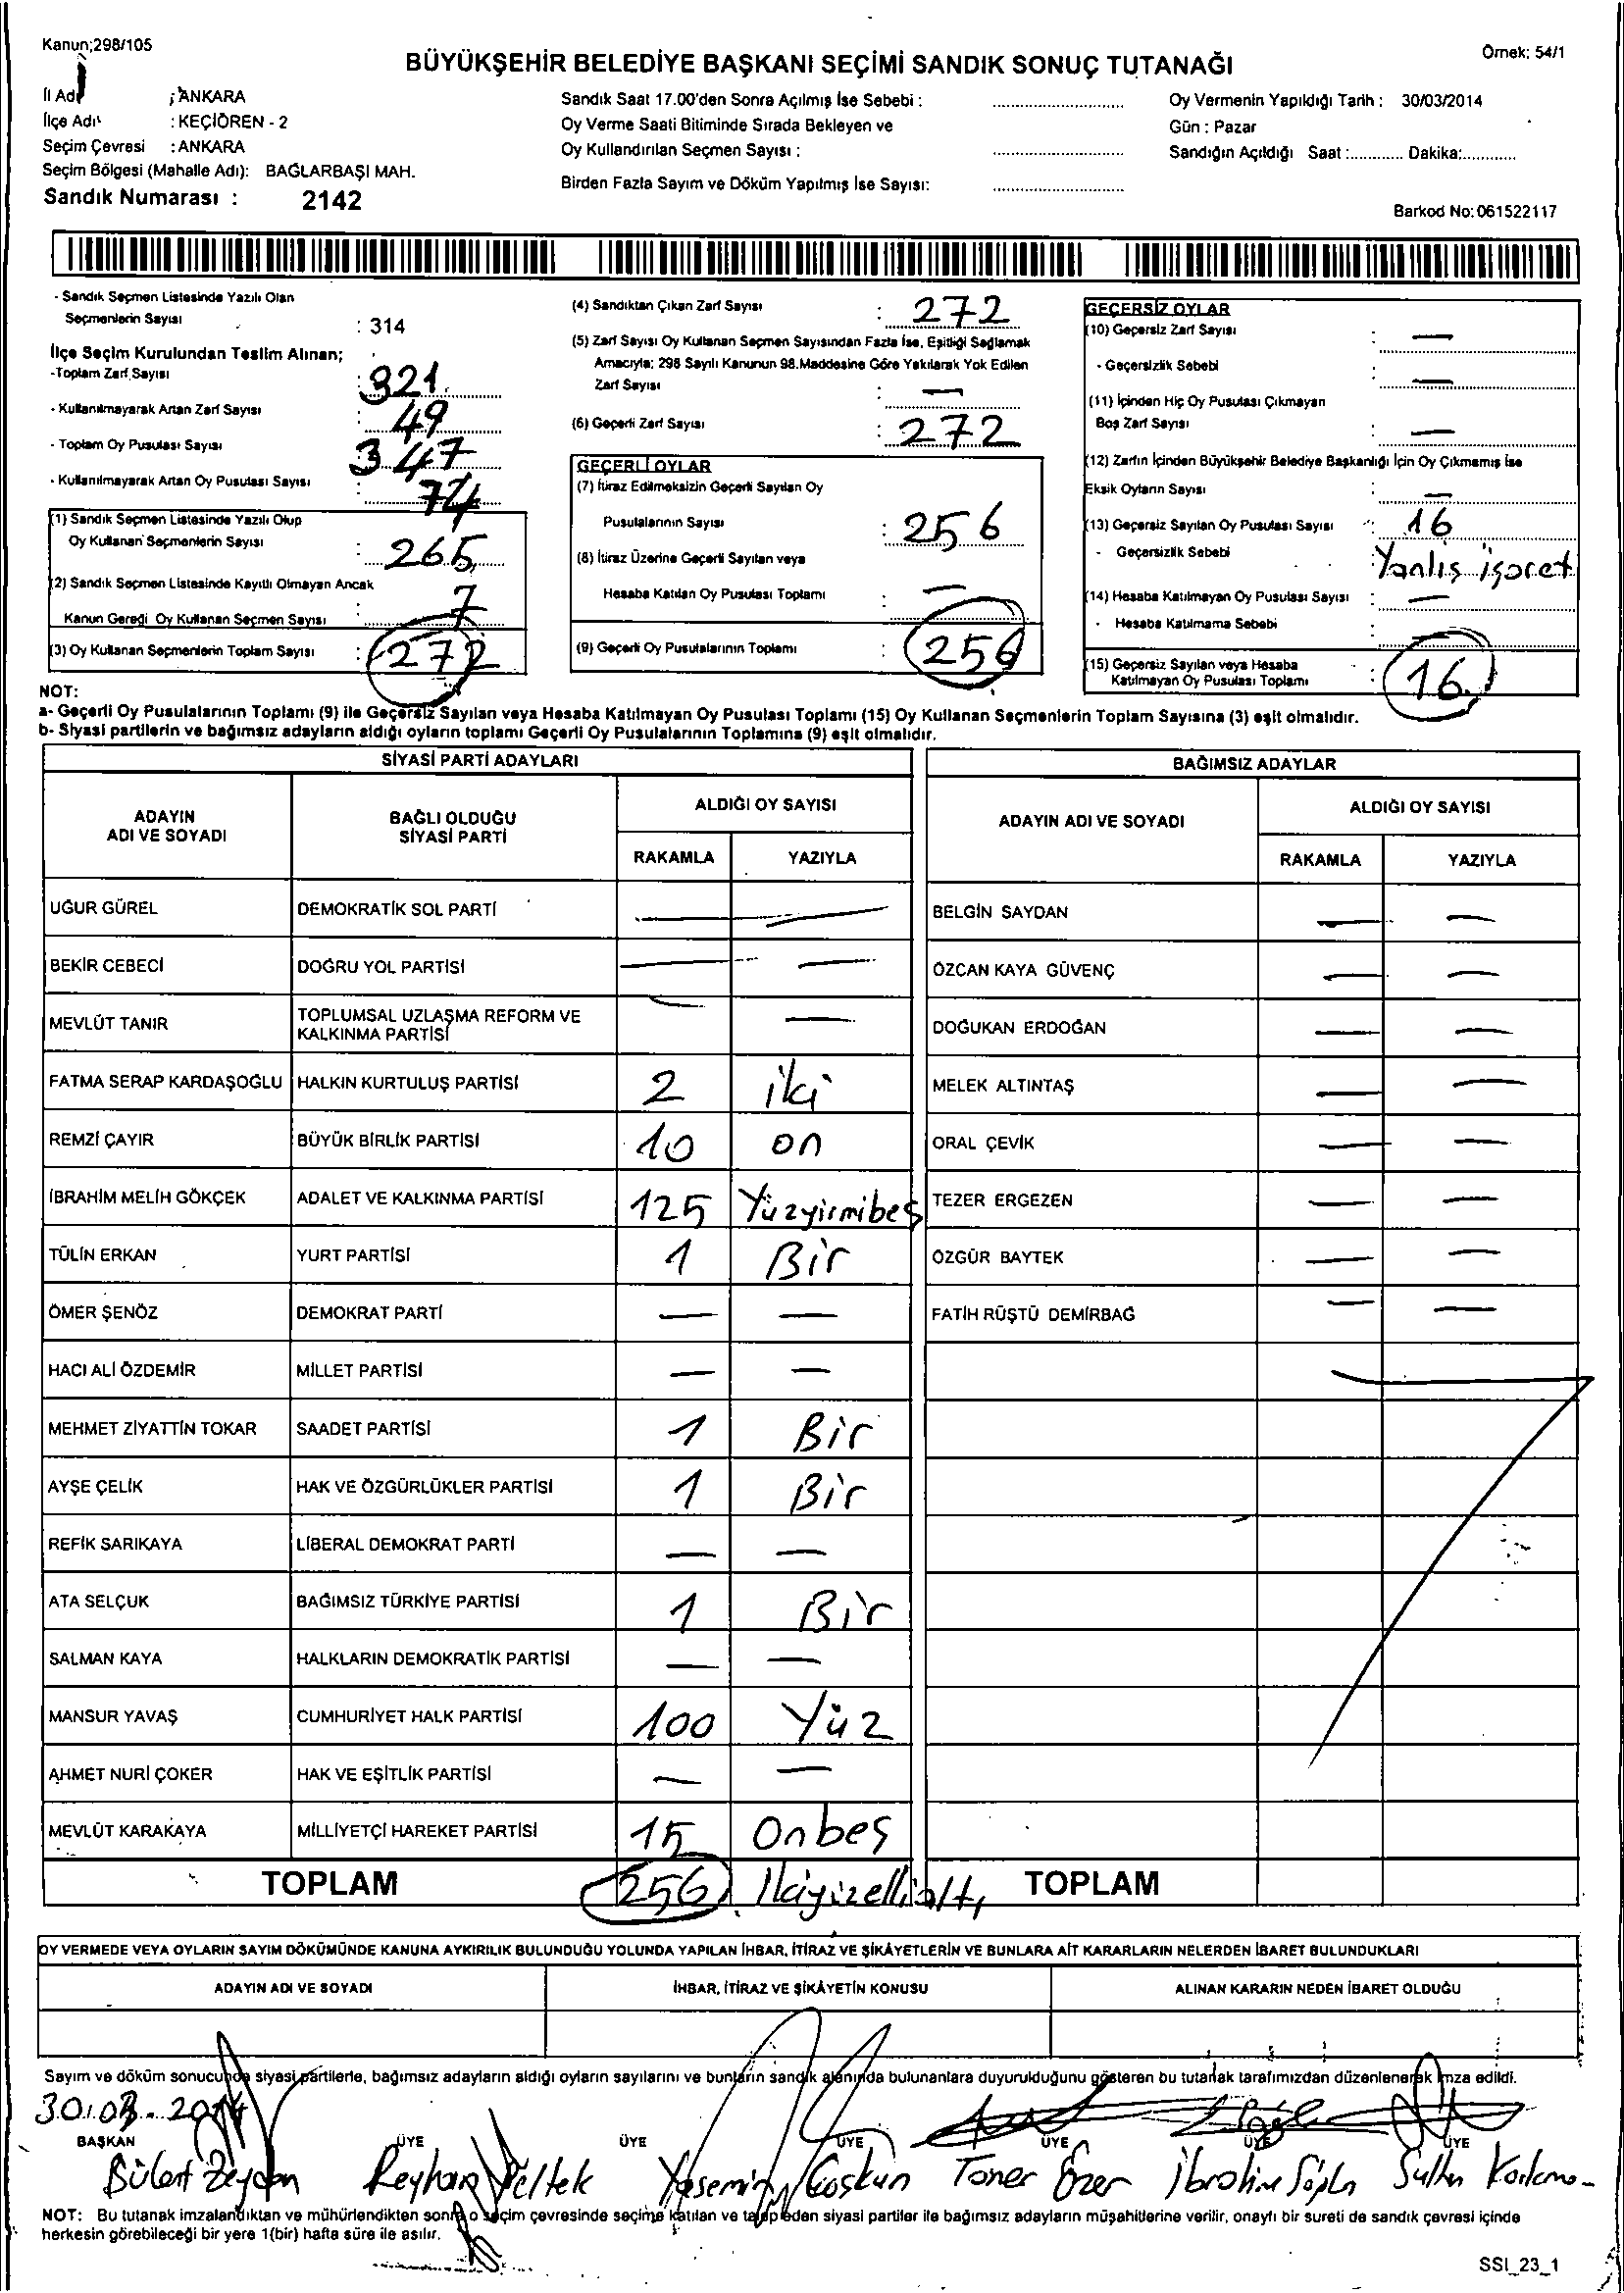 Kanun;298/105
Örnek; 54/1
BÜYÜKŞEHİR BELEDİYE BAŞKANI SEÇİMİ SANDIK SONUÇ TUTANAĞI
İl Adı : ANKARA
İlçe Adı : KEÇİÖREN - 2
Seçim Çevresi : ANKARA
Seçim Bölgesi (Mahalle Adı): BAĞLARBAŞI MAH.
Sandık Numarası : 2142
Sandık Saat 17.00'den Sonra Açılmış İse Sebebi :
Oy Verme Saati Bitiminde Sırada Bekleyen ve
Oy Kullandırılan Seçmen Sayısı :
Birden Fazla Sayım ve Döküm Yapılmış İse Sayısı:
Oy Vermenin Yapıldığı Tarih : 30/03/2014
Gün : Pazar
Sandığın Açıldığı Saat :............ Dakika:............
Barkod No: 061522117
- Sandık Seçmen Listesinde Yazılı Olan
Seçmenlerin Sayısı : 314
İlçe Seçim Kurulundan Teslim Alınan;
-Toplam Zarf Sayısı : 321
- Kullanılmayarak Artan Zarf Sayısı : 49
- Toplam Oy Pusulası Sayısı 347
- Kullanılmayarak Artan Oy Pusulası Sayısı : 74
(1) Sandık Seçmen Listesinde Yazılı Olup
Oy Kullanan Seçmenlerin Sayısı : 265
(2) Sandık Seçmen Listesinde Kayıtlı Olmayan Ancak
Kanun Gereği Oy Kullanan Seçmen Sayısı : 7
(3) Oy Kullanan Seçmenlerin Toplam Sayısı : 272
(4) Sandıktan Çıkan Zarf Sayısı : 272
(5) Zarf Sayısı Oy Kullanan Seçmen Sayısından Fazla İse, Eşitliği Sağlamak
Amacıyla; 298 Sayılı Kanunun 98.Maddesine Göre Yakılarak Yok Edilen
Zarf Sayısı : —
(6) Geçerli Zarf Sayısı : 272
GEÇERLİ OYLAR
(7) İtiraz Edilmeksizin Geçerli Sayılan Oy
Pusulalarının Sayısı : 256
(8) İtiraz Üzerine Geçerli Sayılan veya
Hesaba Katılan Oy Pusulası Toplamı : —
(9) Geçerli Oy Pusulalarının Toplamı : 256
GEÇERSİZ OYLAR
(10) Geçersiz Zarf Sayısı : —
- Geçersizlik Sebebi : —
(11) İçinden Hiç Oy Pusulası Çıkmayan
Boş Zarf Sayısı : —
(12) Zarfın İçinden Büyükşehir Belediye Başkanlığı İçin Oy Çıkmamış İse
Eksik Oyların Sayısı : —
(13) Geçersiz Sayılan Oy Pusulası Sayısı : 16
- Geçersizlik Sebebi : Yanlış işaret
(14) Hesaba Katılmayan Oy Pusulası Sayısı : —
- Hesaba Katılmama Sebebi : —
(15) Geçersiz Sayılan veya Hesaba
Katılmayan Oy Pusulası Toplamı : 16
NOT:
a- Geçerli Oy Pusulalarının Toplamı (9) ile Geçersiz Sayılan veya Hesaba Katılmayan Oy Pusulası Toplamı (15) Oy Kullanan Seçmenlerin Toplam Sayısına (3) eşit olmalıdır.
b- Siyasi partilerin ve bağımsız adayların aldığı oyların toplamı Geçerli Oy Pusulalarının Toplamına (9) eşit olmalıdır.
SİYASİ PARTİ ADAYLARI
ADAYIN ADI VE SOYADI BAĞLI OLDUĞU SİYASİ PARTİ ALDIĞI OY SAYISI
RAKAMLA YAZIYLA
UĞUR GÜREL DEMOKRATİK SOL PARTİ — —
BEKİR CEBECİ DOĞRU YOL PARTİSİ — —
MEVLÜT TANIR TOPLUMSAL UZLAŞMA REFORM VE KALKINMA PARTİSİ — —
FATMA SERAP KARDAŞOĞLU HALKIN KURTULUŞ PARTİSİ 2 iki
REMZİ ÇAYIR BÜYÜK BİRLİK PARTİSİ 10 on
İBRAHİM MELİH GÖKÇEK ADALET VE KALKINMA PARTİSİ 125 Yüzyirmibeş
TÜLİN ERKAN YURT PARTİSİ 1 Bir
ÖMER ŞENÖZ DEMOKRAT PARTİ — —
HACI ALİ ÖZDEMİR MİLLET PARTİSİ — —
MEHMET ZİYATTİN TOKAR SAADET PARTİSİ 1 Bir
AYŞE ÇELİK HAK VE ÖZGÜRLÜKLER PARTİSİ 1 Bir
REFİK SARIKAYA LİBERAL DEMOKRAT PARTİ — —
ATA SELÇUK BAĞIMSIZ TÜRKİYE PARTİSİ 1 Bir
SALMAN KAYA HALKLARIN DEMOKRATİK PARTİSİ — —
MANSUR YAVAŞ CUMHURİYET HALK PARTİSİ 100 Yüz
AHMET NURİ ÇOKER HAK VE EŞİTLİK PARTİSİ — —
MEVLÜT KARAKAYA MİLLİYETÇİ HAREKET PARTİSİ 15 Onbeş
TOPLAM 256 İkiyüzellialtı
BAĞIMSIZ ADAYLAR
ADAYIN ADI VE SOYADI ALDIĞI OY SAYISI
RAKAMLA YAZIYLA
BELGİN SAYDAN — —
ÖZCAN KAYA GÜVENÇ — —
DOĞUKAN ERDOĞAN — —
MELEK ALTINTAŞ — —
ORAL ÇEVİK — —
TEZER ERGEZEN — —
ÖZGÜR BAYTEK — —
FATİH RÜŞTÜ DEMİRBAĞ — —
TOPLAM
OY VERMEDE VEYA OYLARIN SAYIM DÖKÜMÜNDE KANUNA AYKIRILIK BULUNDUĞU YOLUNDA YAPILAN İHBAR, İTİRAZ VE ŞİKÂYETLERİN VE BUNLARA AİT KARARLARIN NELERDEN İBARET BULUNDUKLARI
ADAYIN ADI VE SOYADI İHBAR, İTİRAZ VE ŞİKÂYETİN KONUSU ALINAN KARARIN NEDEN İBARET OLDUĞU
Sayım ve döküm sonucunda siyasi partilerle, bağımsız adayların aldığı oyların sayılarını ve bunların sandık alanında bulunanlara duyurulduğunu gösteren bu tutanak tarafımızdan düzenlenerek imza edildi.
30.03.2014
BAŞKAN ÜYE ÜYE ÜYE ÜYE ÜYE ÜYE
Bülent Zeydan Reyhan Peltek Yasemin Coşkun Taner Özer İbrahim Sultan
NOT: Bu tutanak imzalandıktan ve mühürlendikten sonra o seçim çevresinde seçime katılan ve talep eden siyasi partiler ile bağımsız adayların müşahitlerine verilir, onaylı bir sureti de sandık çevresi içinde
herkesin görebileceği bir yere 1(bir) hafta süre ile asılır.
SSI_23_1